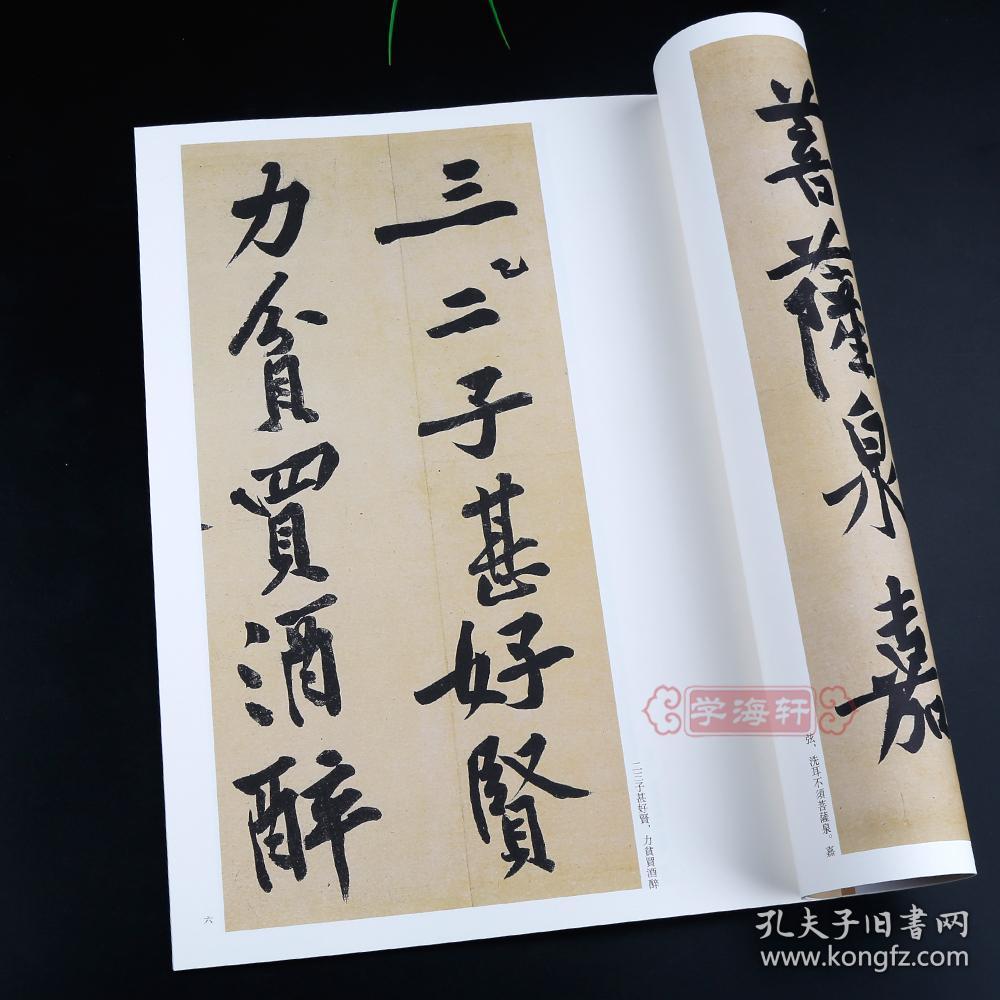 菩薩泉嘉
弦，洗耳不須菩薩泉。嘉
三二子甚好賢
力貧買酒醉
二三子甚好賢，力貧買酒醉
六
学海轩
孔夫子旧书网
www.kongfz.com